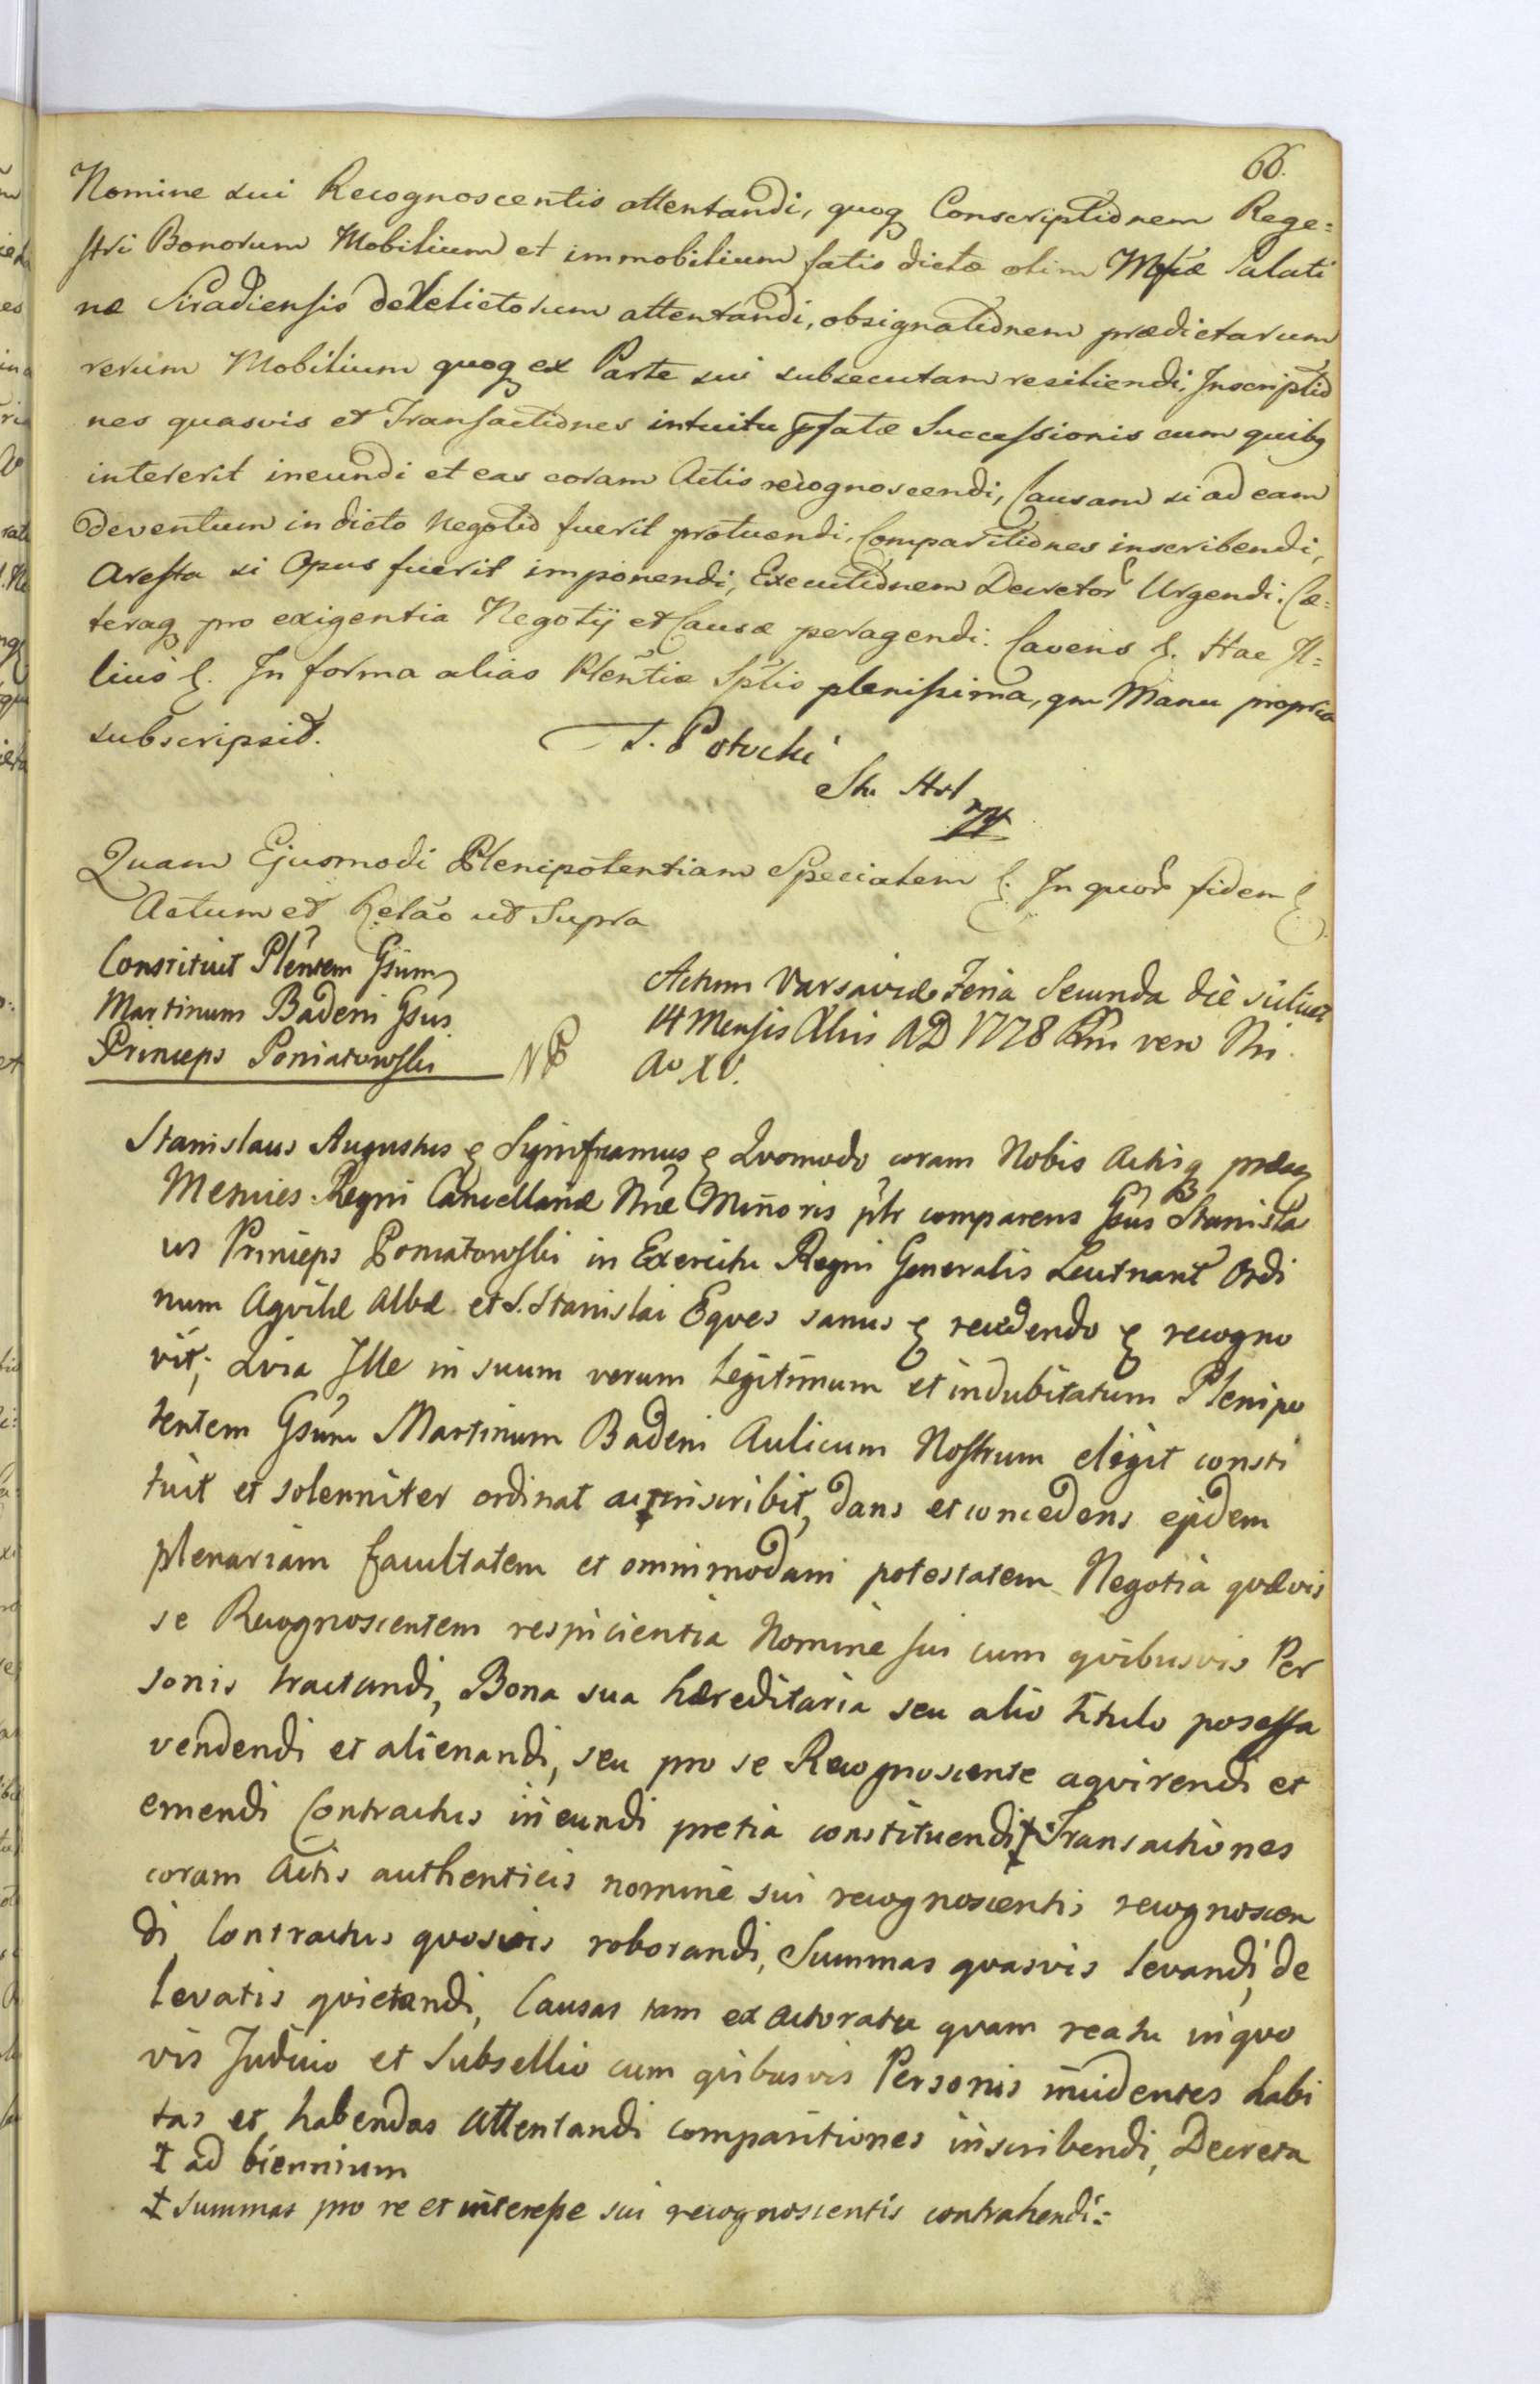 66.
Nomine sui Recognoscentis attentandi, quoq Conscriptionem Rege=
stri Bonorum Mobilium et immobilium satis dictæ olim Mftæ Palati
næ Siradiensis derelictorum attentandi, obsignationem prædictarum
rerum Mobilium quoq ex Parte sui subsecutam resiliendi, Inscriptio
nes quasvis et Transactiones intuitu pfatæ Successionis cum quibq
intererit ineundi et eas coram Actis recognoscendi, Causam si ad eam
deventum in dicto Negotio fuerit protuendi, Comparitiones inscribendi,
Aresta si Opus fuerit imponendi, Executionem Decretor Urgendi. Cæ=
teraq pro exigentia Negotij et Causæ peragendi. Cavens &. Hac Il=
lius &. In forma alias Plentiæ Splis plenissima, qm Manu propria
subscripsit.
T. Potocki
mp
Quam Ejusmodi Plenipotentiam Specialem &. In quor fidem &
Actum et Relao ut Supra
Constituit Plentem Gsum
Martinum Badeni Gsus
Princeps Poniatowski
NB
Actum Varsaviæ Feria Secunda die scilicet
14 Mensis Xbris AD 1778 Rni vero Nri
Ao XV.
Stanislaus Augustus & Significamus & Quomodo coram Nobis Actisq præsq
Metrices Regni Cancellariæ Nræ Minoris pltr comparens Gsus Stanisla
us Princeps Poniatowski in Exercitu Regni Generalis Leutnant Ordi
num Aqvilæ Albæ et S. Stanislai Eqves sanus & recedendo & recogno
vit; Qvia Ille in suum verum legitimum et indubitatum Plenipo
tentem Gsum Martinum Badeni Aulicum Nostrum eligit consti
tuit et solenniter ordinat ac ‡ inscribit, dans et concedens ejidem
plenariam facultatem et omnimodam potestatem Negotia qvævis
se Recognoscentem respicientia Nomine sui cum qvibusvis Per
sonis tractandi, Bona sua hæreditaria seu alio titulo posessa
vendendi et alienandi, seu pro se Recognoscente aqvirendi et
emendi Contractus ineundi pretia constituendi ‡ Transactiones
coram Actis authenticis nomine sui recognoscentis recognoscen
di Contractus qvosvis roborandi, Summas qvasvis levandi, de
levatis qvietandi, Causas tam ex Actoratu qvam reatu in qvo
vis Judicio et Subsellio cum qvibusvis Personis incidentes habi
tas et habendas Attentandi comparitiones inscribendi, Decreta
‡ ad biennium
‡ Summas pro re et interesse sui recognoscentis contrahendi=